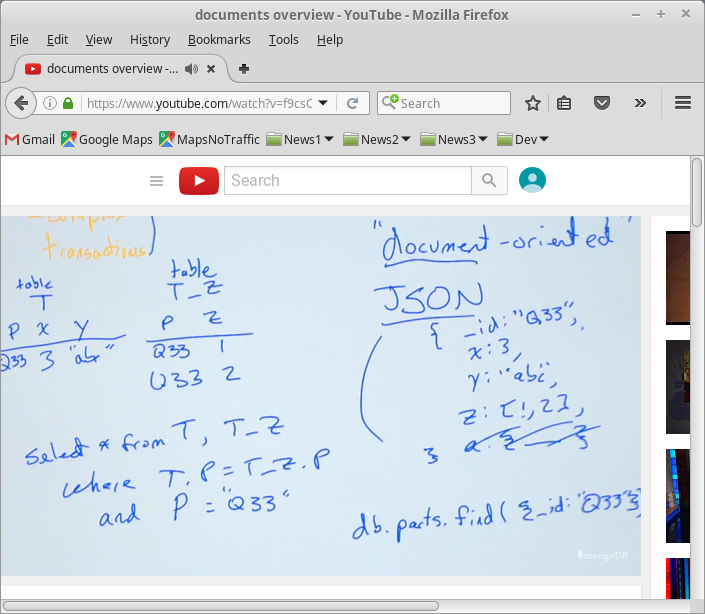 documents overview - YouTube - Mozilla Firefox
File Edit View History Bookmarks Tools Help
documents overview -...
https://www.youtube.com/watch?v=f9csC
Search
Gmail Google Maps MapsNoTraffic News1 News2 News3 Dev
Search
complex
transactions
table
T
P X Y
Q33 3 "abx"
table
T_Z
P Z
Q33 1
Q33 2
select * from T, T_Z
where T.P = T_Z.P
and P = "Q33"
"document-oriented"
JSON
{ _id: "Q33",
x: 3,
y: "abc",
z: [1,2],
}
db.parts.find( {_id: "Q33"}
mongoDB